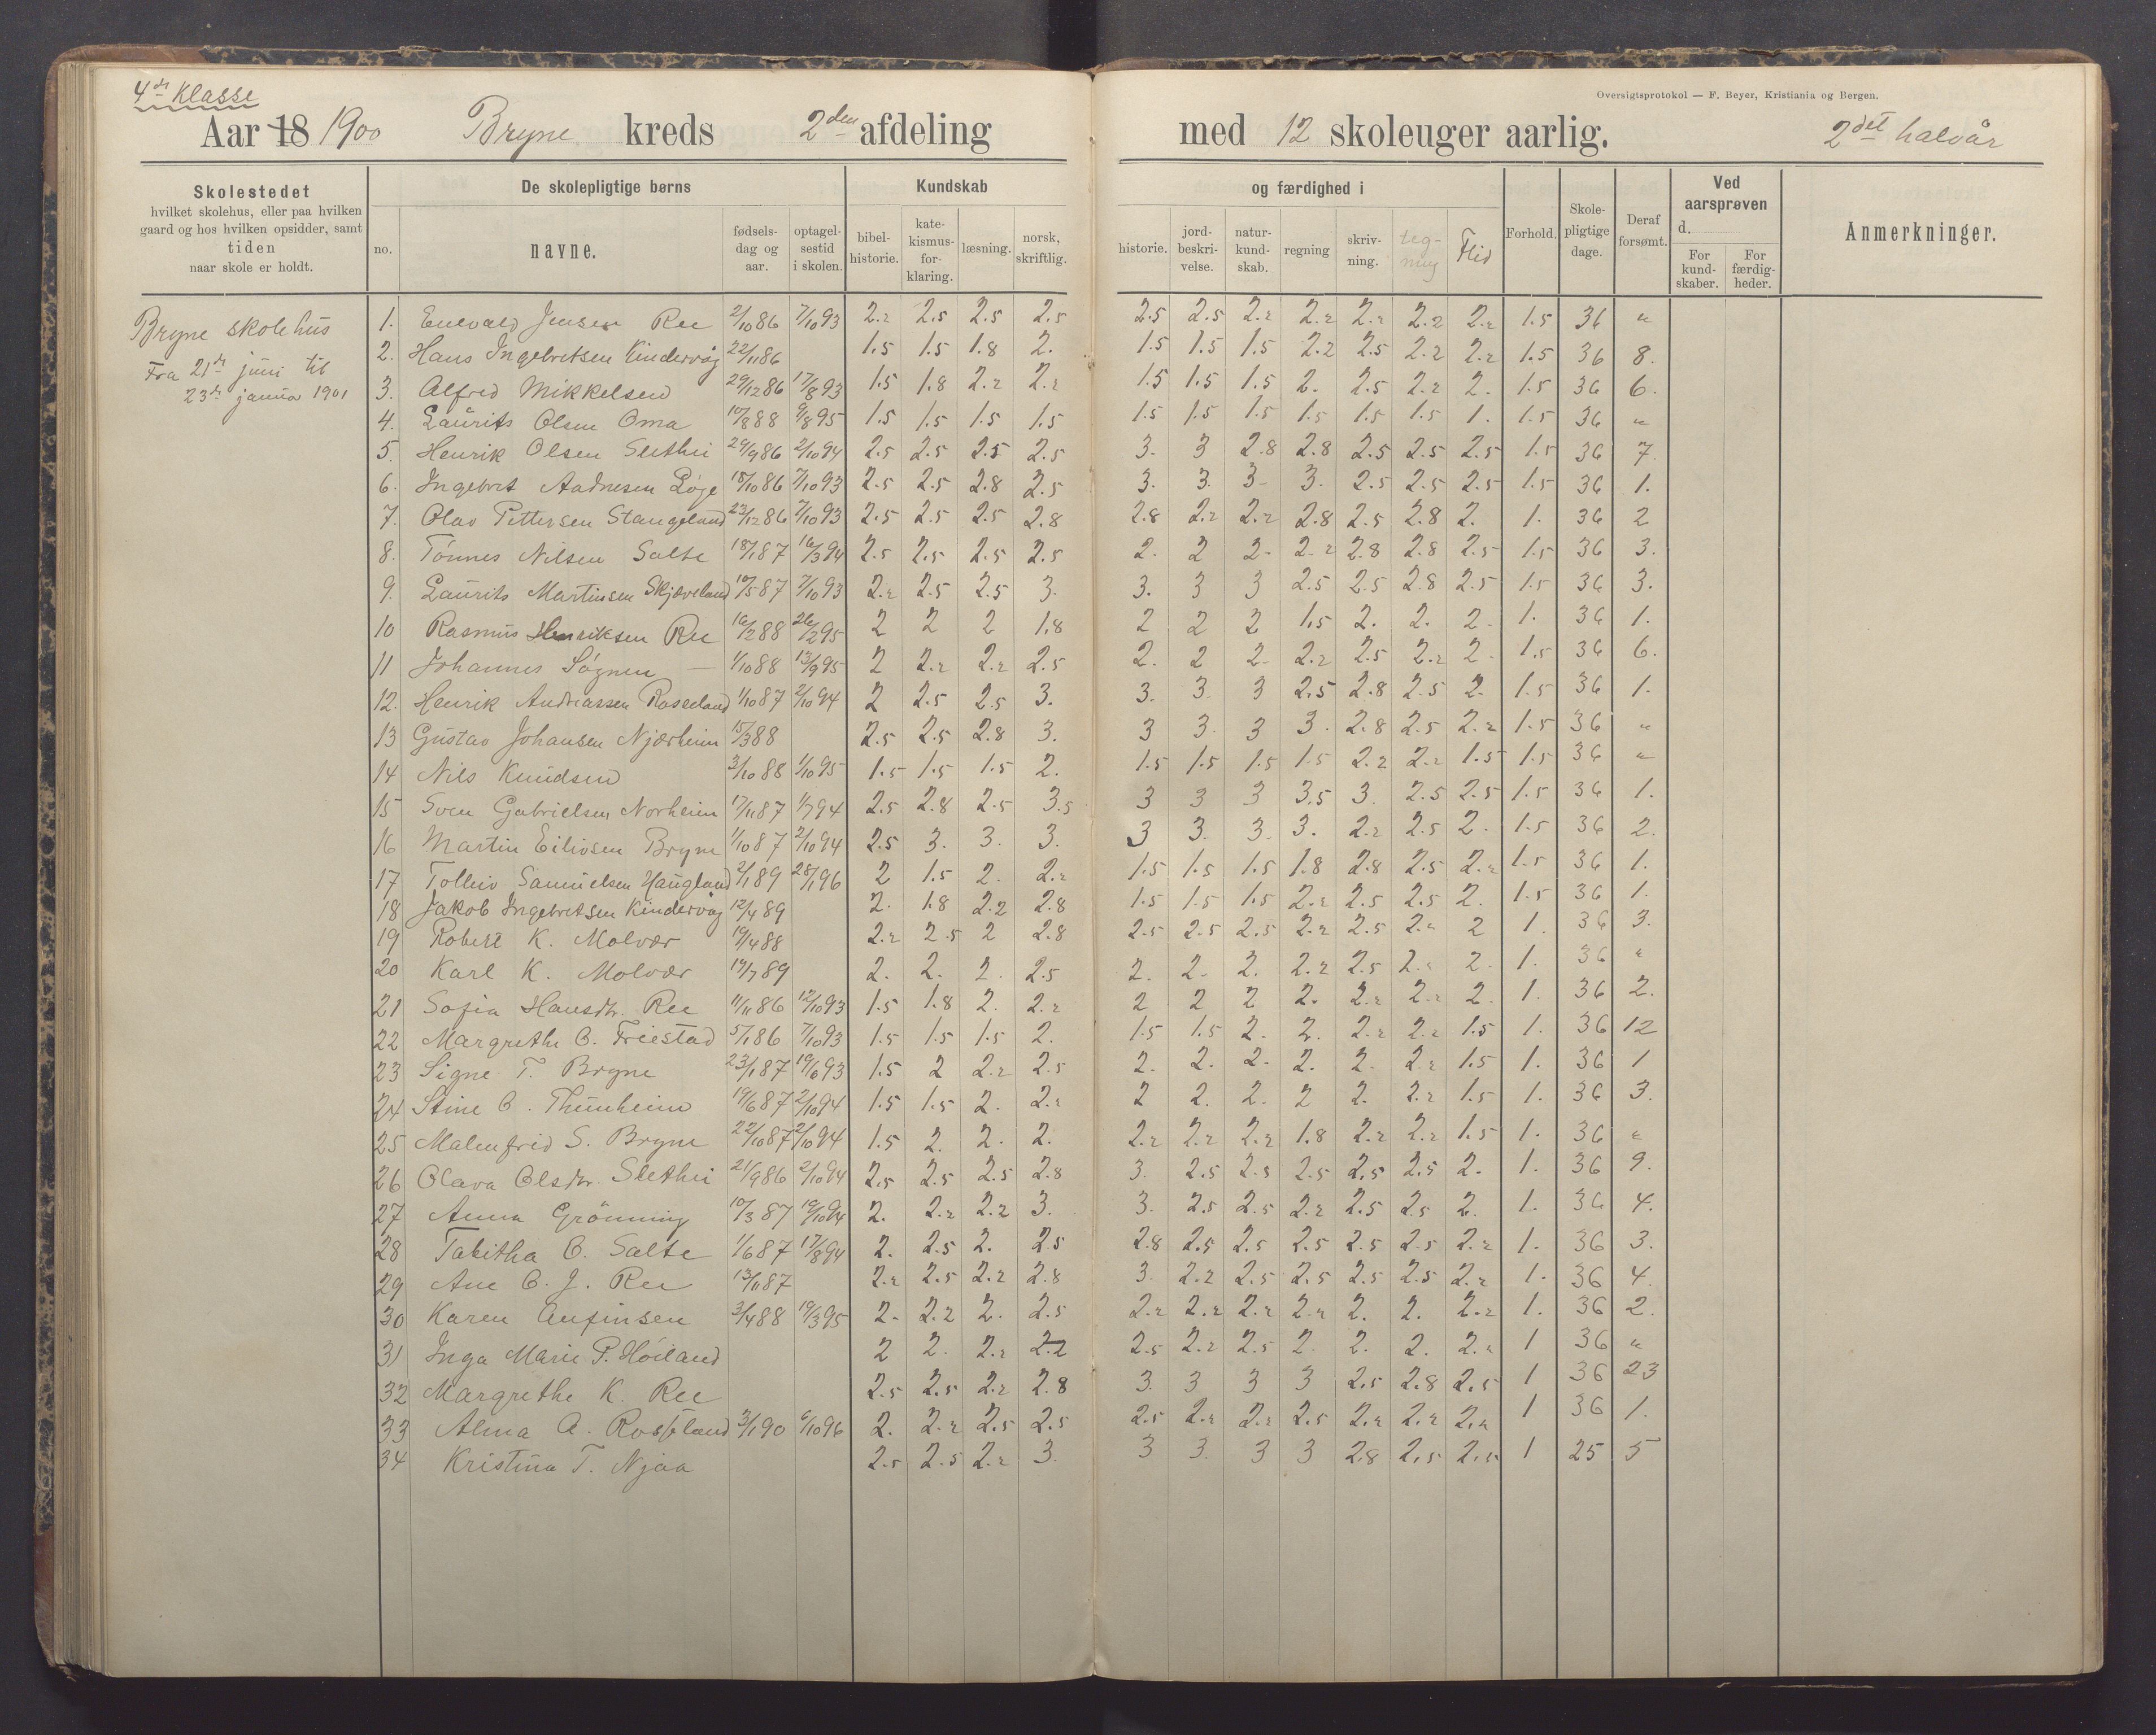 4de Klasse
Oversigtsprotokol — F. Beyer, Kristiania og Bergen.
Aar 18 1900 Bryne kreds 2den afdeling med 12 skoleuger aarlig. 2det halvår
Skolestedet hvilket skolehus, eller paa hvilken gaard og hos hvilken opsidder, samt tiden naar skole er holdt.
De skolepligtige børns
no. navne. fødselsdag og aar. optagelsestid i skolen.
Kundskab og færdighed i
bibelhistorie. katekismusforklaring. læsning. norsk, skriftlig. historie. jordbeskrivelse. naturkundskab. regning skrivning. tegning Flid
Forhold. Skolepligtige dage. Deraf forsømt. Ved aarsprøven d. For kundskaber. For færdigheder. Anmerkninger.
Bryne skolehus
Fra 21de juni til
23de janua 1901
1. Enevald Jensen Ree 2/10 86 7/10 93 2.2 2.5 2.5 2.5 2.5 2.5 2.2 2.2 2.2 2.2 2.2 1.5 36 "
2. Hans Ingebretsen Kindervåg 22/11 86 1.5 1.5 1.8 2. 1.5 1.5 1.5 2.2 2.5 2.2 2.2 1.5 36 8.
3. Alfred Mikkelsen 29/12 86 17/8 93 1.5 1.8 2.2 2.2 1.5 1.5 1.5 2. 2.5 2.2 2. 1.5 36 6.
4. Laurits Olsen Oma 10/8 88 9/8 95 1.5 1.5 1.5 1.5 1.5 1.5 1.5 1.5 1.5 1.5 1. 1.5 36 "
5. Henrik Olsen Slethei 29/9 86 2/10 94 2.5 2.5 2.5 2.5 3. 3 2.8 2.8 2.5 2.5 2.5 1.5 36 7.
6. Ingebret Aadnesen Løge 18/10 86 7/10 93 2.5 2.5 2.8 2.5 3. 3. 3 3. 2.5 2.5 2.5 1.5 36 1.
7. Olav Pettersen Stangeland 23/12 86 7/10 93 2.5 2.5 2.5 2.8 2.8 2.2 2.2 2.8 2.5 2.8 2. 1. 36 2
8. Tönnes Nilsen Salte 18/1 87 16/3 94 2.5 2.5 2.5 2.5 2. 2 2. 2.2 2.8 2.8 2.5 1.5 36 3.
9. Laurits Martinsen Skjæveland 10/5 87 7/10 93 2.2 2.5 2.5 3. 3. 3 3 2.5 2.5 2.8 2.5 1.5 36 3.
10 Rasmus Henriksen Ree 16/2 88 26/2 95 2 2 2 1.8 2 2 2 1.5 2. 2. 2. 1. 36 1.
11 Johannes Sógnen — 1/10 88 13/9 95 2 2.2 2.2 2.5 2. 2 2. 2.2 2.5 2.2 2. 1.5 36 6.
12. Henrik Andreassen Rosseland 1/10 87 2/10 94 2 2.5 2.5 3. 3. 3. 3 2.5 2.8 2.5 2. 1.5 36 1.
13 Gustav Johansen Njærheim 15/3 88 2.5 2.5 2.8 3. 3 3. 3 3. 2.8 2.5 2.2 1.5 36 "
14 Nils Knudsen 3/10 88 1/10 95 1.5 1.5 1.5 2. 1.5 1.5 1.5 1.5 2.2 2.2 1.5 1.5 36 "
15 Sven Gabrielsen Norheim 17/11 87 1/7 94 2.5 2.8 2.5 3.5 3 3 3 3.5 3. 2.5 2.5 1.5 36 1.
16 Martin Eilivsen Bryne 1/10 87 2/10 94 2.5 3. 3. 3. 3 3. 3. 3. 2.2 2.5 2. 1.5 36 2.
17 Tolleiv Samuelsen Haugland 2/1 89 28/1 96 2 1.5 2. 2.2 1.5 1.5 1.5 1.8 2.8 2.5 2.2 1.5 36 1.
18 Jakob Ingebretsen Kindervåg 12/4 89 2. 1.8 2.2 2.8 1.5 1.5 1.5 2.2 2.5 2.5 2. 1.5 36 1.
19 Robert K. Molvær 19/4 88 2.2 2.5 2 2.8 2.5 2.5 2.5 2.2 2.5 2.2 2 1. 36 3.
20 Karl K. Molvær 19/7 89 2. 2. 2. 2.5 2. 2. 2. 2.2 2.5 2.2 2. 1. 36 "
21 Sofia Hansdtr. Ree 11/11 86 12/10 93 1.5 1.8 2. 2.2 2 2 2 2. 2.2 2.2 2. 1. 36 2.
22 Margrethe B. Friestad 5/1 86 7/10 93 1.5 1.5 1.5 2. 1.5 1.5 2. 2. 2.2 2.2 1.5 1. 36 12
23 Signe T. Bryne 23/1 87 19/6 93 1.5 2 2.2 2.5 2. 2. 2. 2. 2. 2.2 1.5 1. 36 1
24 Stine B. Thunheim 19/6 87 2/10 94 1.5 1.5 2. 2.2 2 2. 2. 2 2. 2.2 1.5 1. 36 3.
25 Malenfrid S. Bryne 22/10 87 2/10 94 1.5 2. 2. 2. 2.2 2.2 2.2 1.8 2.2 2.2 1.5 1. 36 "
26 Olava Olsdtr. Slethei 21/9 86 2/10 94 2.5 2.5 2.5 2.8 3. 2.5 2.5 2.5 2.5 2.5 2. 1. 36 9.
27 Anna Grönning 10/3 87 19/10 94 2. 2.2 2.2 3. 3. 2.5 2.5 2.2 2.5 2.5 2. 1. 36 4.
28 Tabitha B. Salte 1/6 87 17/8 94 2. 2.5 2. 2.5 2.8 2.5 2.5 2.5 2.5 2.5 2.2 1. 36 3.
29 Ane B. J. Ree 13/11 87 2.2 2.5 2.2 2.8 3. 2.2 2.5 2.5 2.5 2.5 2.2 1. 36 4.
30 Karen Anfinsen 3/4 88 19/3 95 2. 2.2 2. 2.5 2.2 2.2 2.2 2.2 2. 2. 2.2 1. 36 2.
31 Inga Marie P. Höiland 2 2. 2.2 2.2 2.5 2.2 2.5 2. 2. 2. 2.2 1 36 "
32 Margrethe K. Ree 2.5 2.5 2.2 2.8 3. 3 3 3 2.5 2.8 2.5 1 36 23
33 Alma A. Rosseland 3/1 90 6/10 96 2. 2.2 2.5 2.5 2.5 2.2 2.2 2.5 2.2 2.2 2.2 1 36 1.
34 Kristina T. Njaa 2.5 2.5 2.2 3. 3 3. 3 3 2.8 2.5 2.5 1 25 5